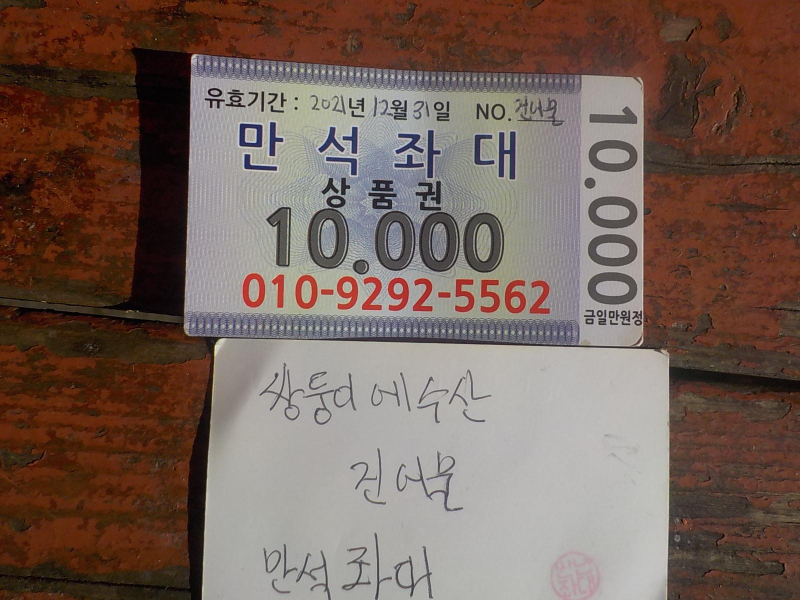 유효기간 : 2021년 12월 31일 NO. 건어물
만석좌대
상품권
10.000
010-9292-5562
10.000
금일만원정
쌍둥이네수산
건어물
만석좌대
만석
좌대